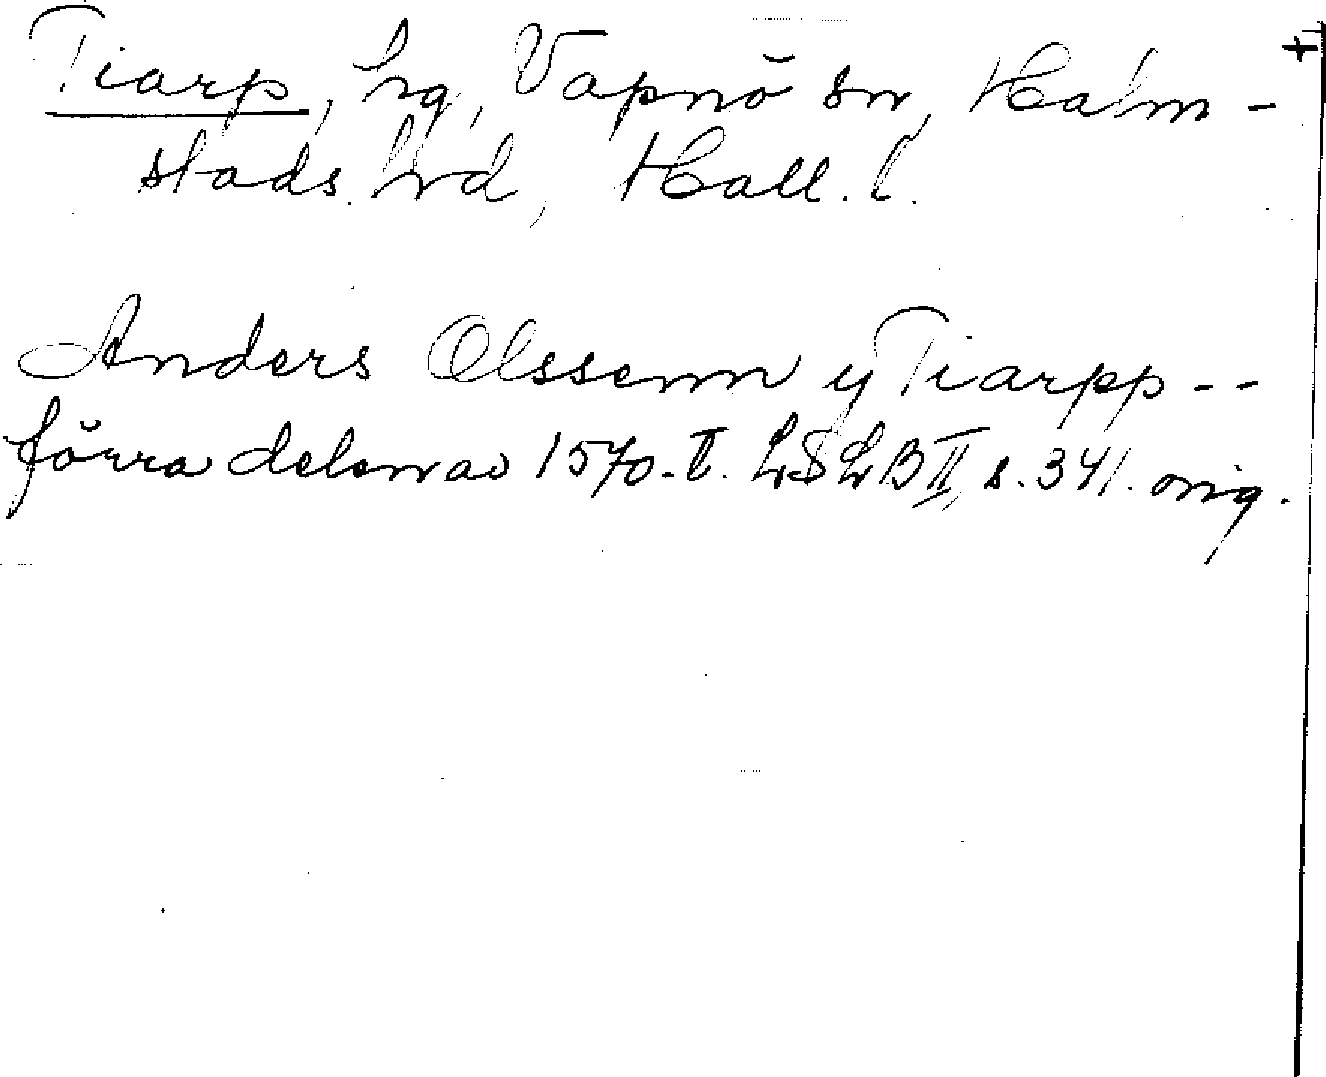 Tiarp, hg, Vapnö sn, Halm-
stads hrd, Hall. l.
Anders Olssenn y Tiarpp --
förra delen av 1570-t. LSLB II, s. 341. orig.